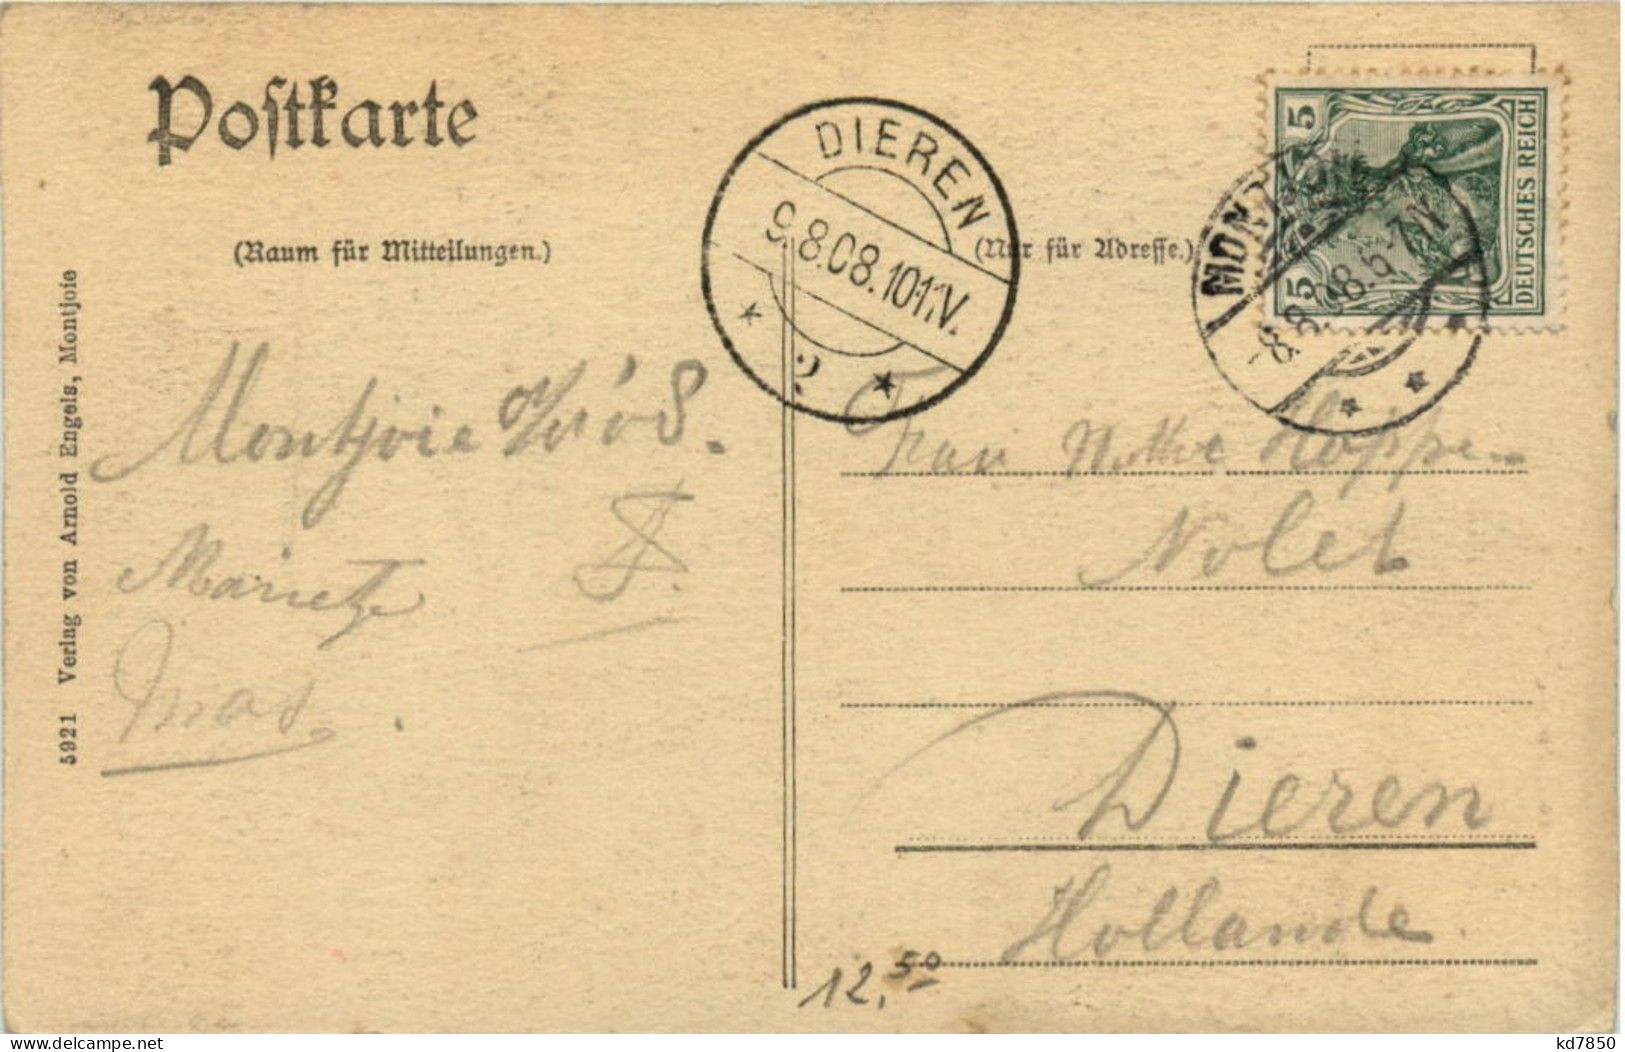 Postkarte
(Raum für Mitteilungen.)
(Nur für Adresse.)
DIEREN
9.8.08.10-11V.
2
MONTJOIE
8.8.08.6-7N
5
5
DEUTSCHES REICH
5921 Verlag von Arnold Engels, Montjoie
Montjoie
Frau Hoppe-
Nolet
Dieren
Hollande
12,50
delcampe.net
kd7850